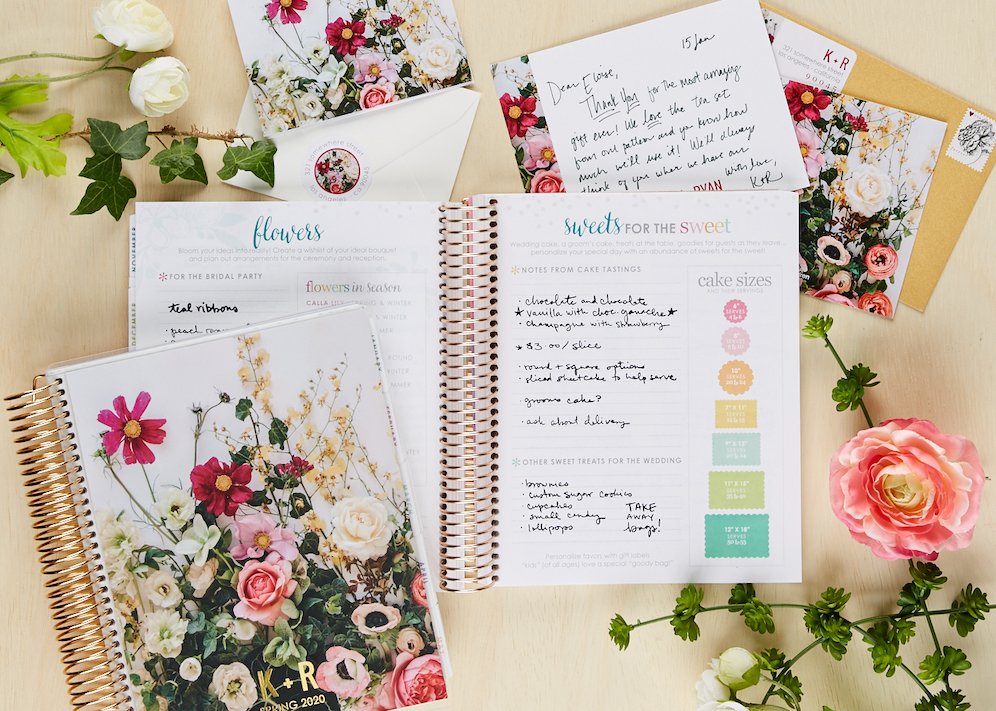 15 Jan
Dear Eloise,
Thank You for the most amazing
gift ever! We love the tea set
from our pattern and you know how
much we'll use it! We'll always
think of you when we have our
with love,
K+R
RYAN
K + R
321 somewhere street
los angeles - california
90045
321 somewhere street
los angeles
NOVEMBER
DECEMBER
flowers
Bloom your ideas into reality! Create a wishlist of your ideal bouquet
and plan out arrangements for the ceremony and reception.
*FOR THE BRIDAL PARTY
teal ribbons
• peach
flowers in season
CALLA LILY SPRING & WINTER
& WINTER
ROUND
sweets FOR THE sweet
Wedding cake, a groom's cake, treats at the table, goodies for guests as they leave...
personalize your special day with an abundance of sweets for the sweet!
*NOTES FROM CAKE TASTINGS
• chocolate and chocolate
★ vanilla with choc. ganache ★
• champagne with strawberry
★ $3.00/slice
• round + square options
• sliced sheetcake to help serve
• grooms cake?
• ask about delivery
*OTHER SWEET TREATS FOR THE WEDDING
• brownies
• custom sugar cookies
• cupcakes
• small candy
• lollipops
TAKE
AWAY
bags!
Personalize favors with gift labels
"kids" (of all ages) love a special "goody bag"
cake sizes
AND THEIR SERVINGS
6"
SERVES
8"
SERVES
10"
SERVES
7" X 11"
SERVES
9" X 13"
SERVES
11" X 15"
SERVES
12" X 18"
SERVES
K + R
SPRING 2020